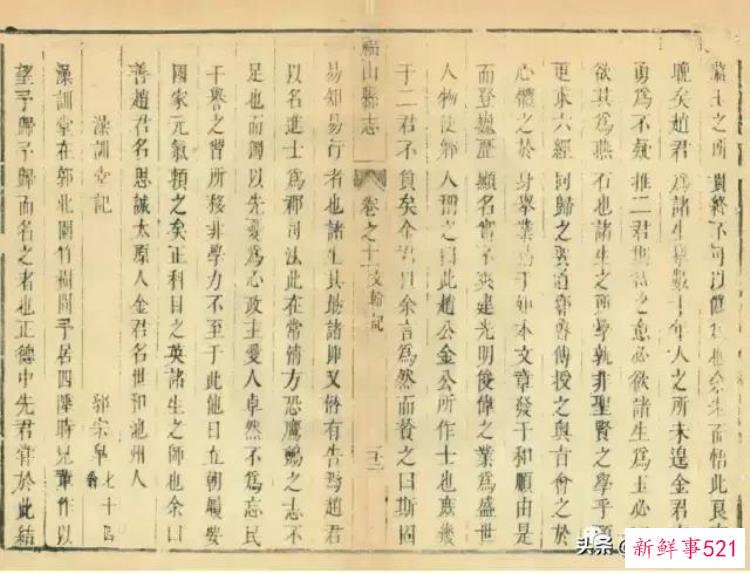 士之所貴終不可以也余而悟此良
晚矣趙君為諸生算數十年人之所未遑金君
勇為不疑推二君期之意必欲諸生為玉必
欲其為燕石也諸生之所學孰非聖賢之學乎
更求六經同歸之異道齊魯傳授之與古會之於
心體之於身舉業為于如本文章發于和順由是
而登巍歷顯名實不爽建光明俊偉之業為盛世
人物使鄉人稱之曰此趙公金公所作士也庶幾
于二君不負矣君以余言為然而贊之曰斯固
福山縣志 卷之十 文翰記
易知易行者也諸生其勗諸抑又有告焉趙君
以名進士為郡司法此在常情方恐鷹鸇之志不
足也而獨以先愛為心政主愛人卓然不為忘民
干譽之習所移非學力不至于此他日在朝要
國家元氣頼之矣正科目之英諸生之師也余曰
善趙君名思誠太原人金君名世和池州人
澡訓堂記
郭宗皋 七十翁
澡訓堂在郭北園竹樹間予居四時兄輩作以
望予歸予歸而名之者也正德中先君官於此結
头条
新鲜事521